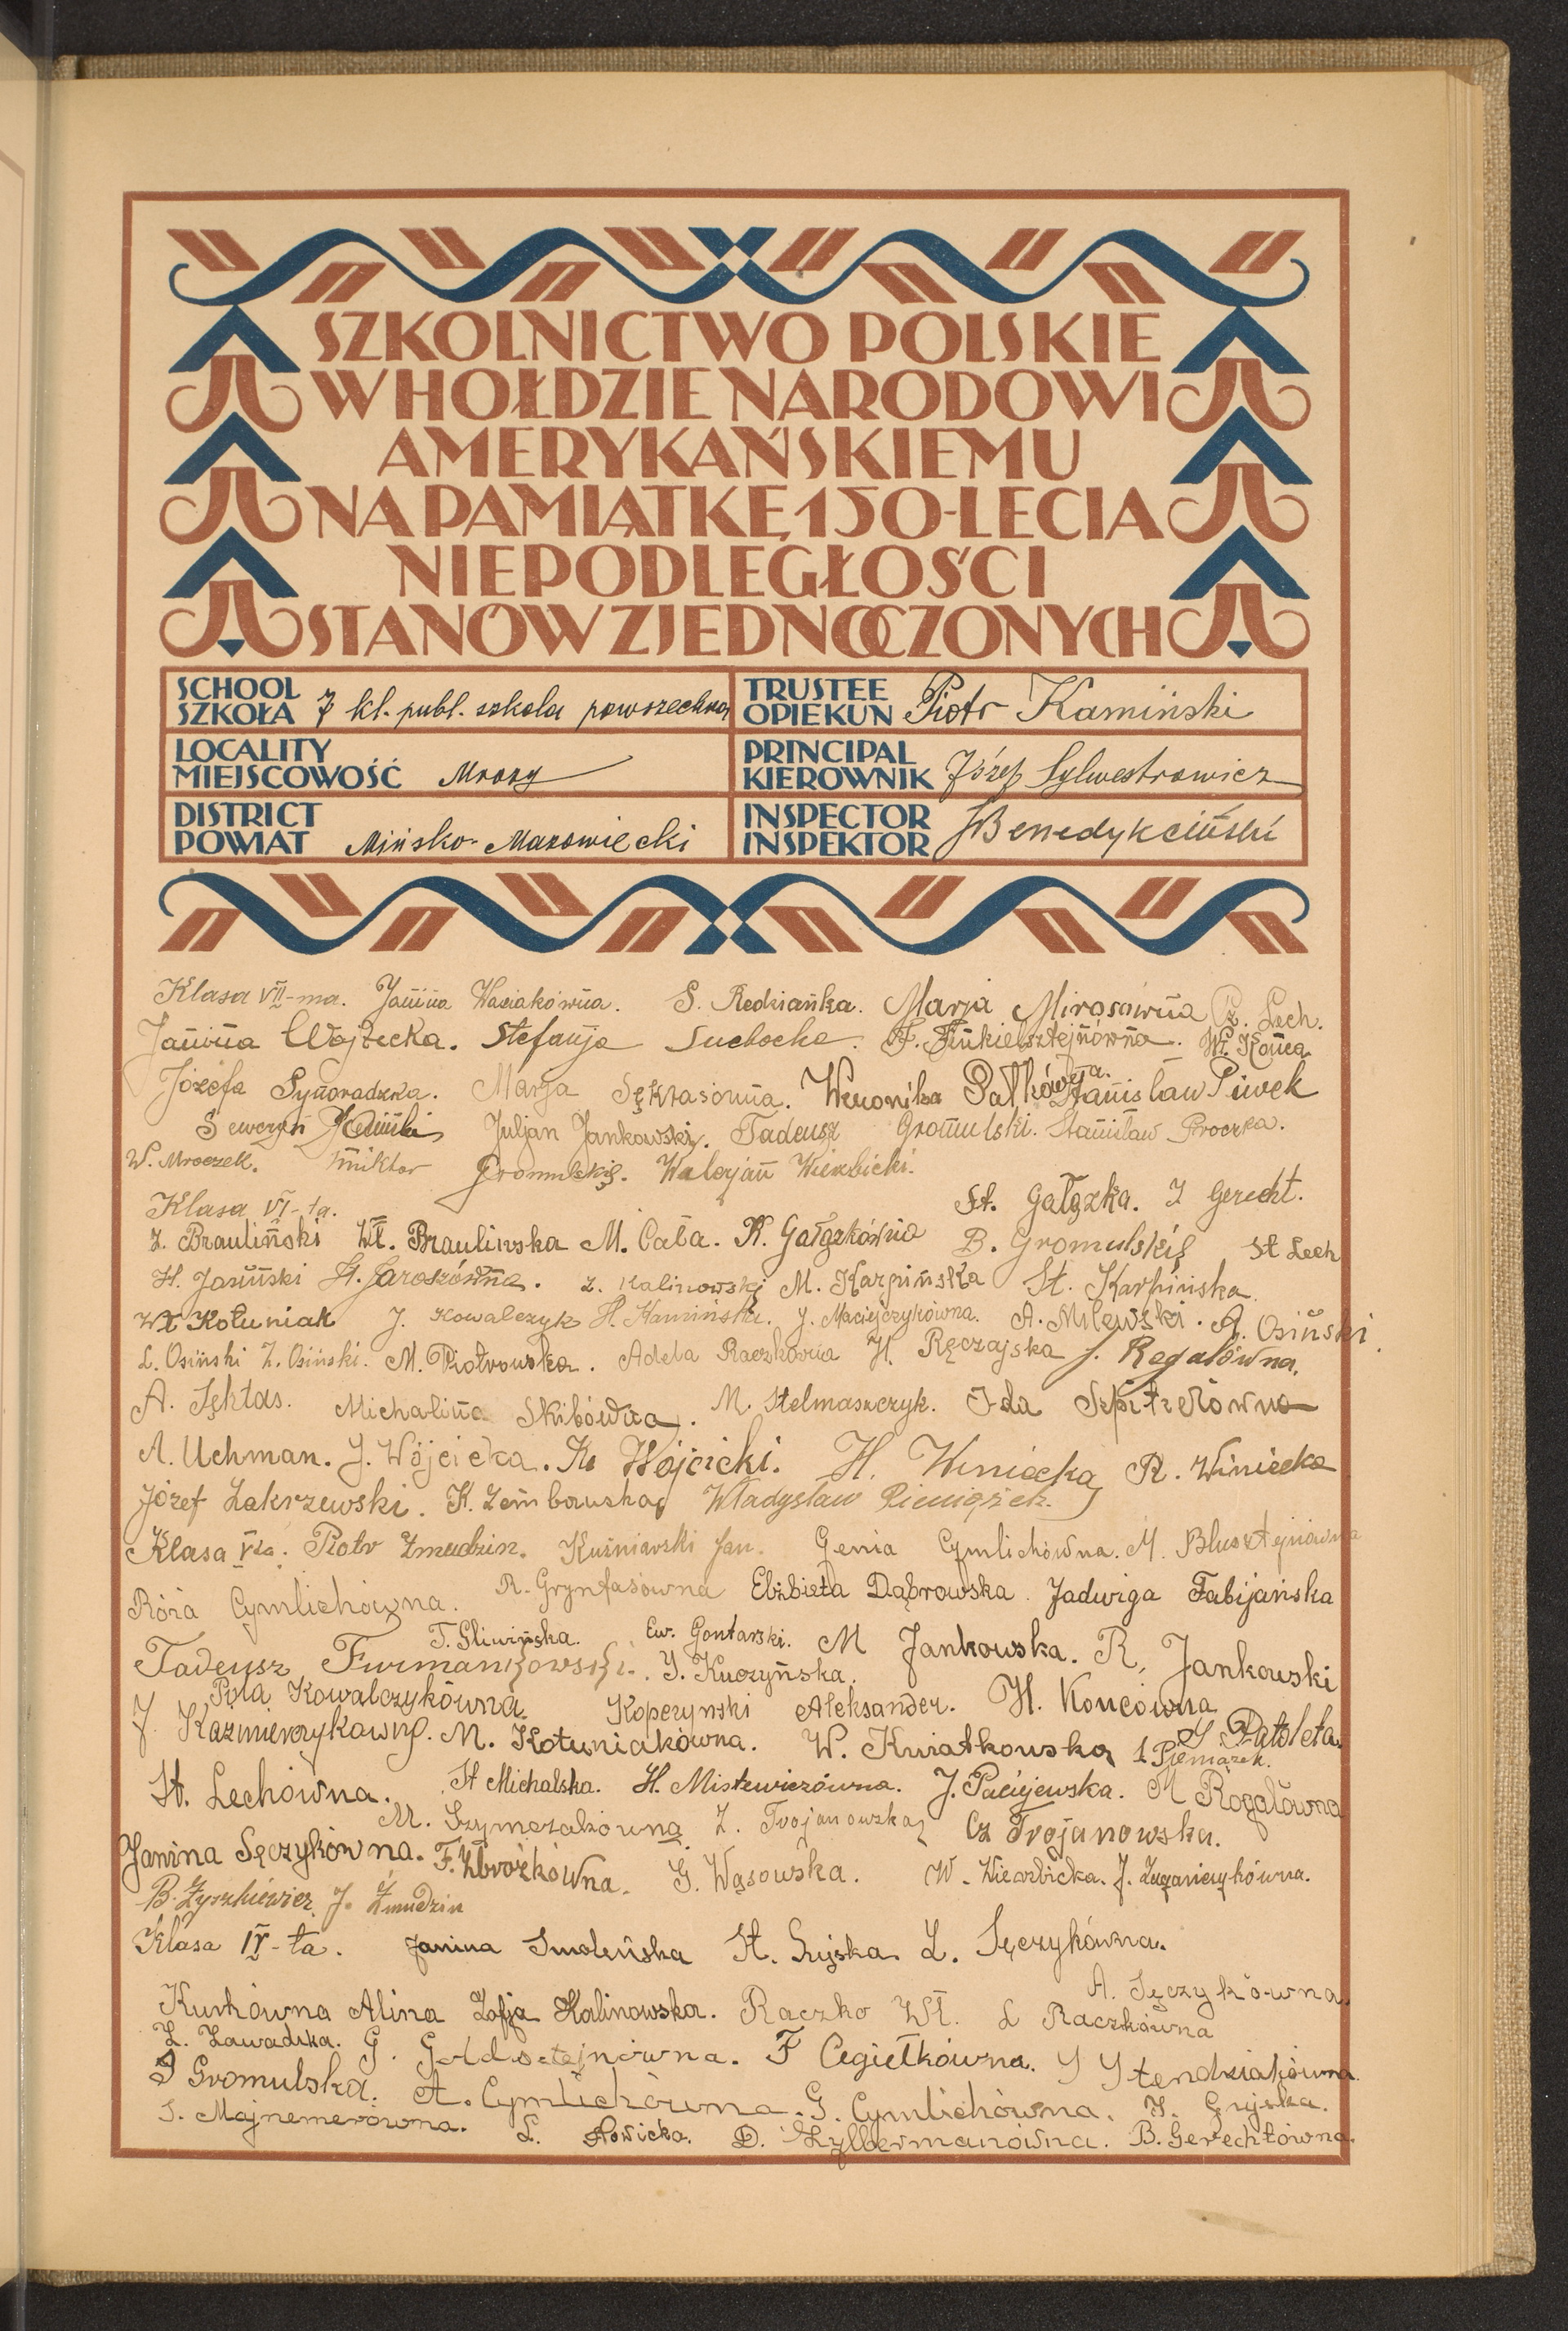 SZKOLNICTWO POLSKIE
W HOŁDZIE NARODOWI
AMERYKAŃSKIEMU
NA PAMIĄTKĘ 150-LECIA
NIEPODLEGŁOŚCI
STANÓW ZJEDNOCZONYCH
SCHOOL
SZKOŁA 7 kl. publ. szkoła powszechna
TRUSTEE
OPIEKUN Piotr Kamiński
LOCALITY
MIEJSCOWOŚĆ Mrozy
PRINCIPAL
KIEROWNIK Józef Sylwestrowicz
DISTRICT
POWIAT Mińsko-Mazowiecki
INSPECTOR
INSPEKTOR Benedykciński
Klasa VII-ma. Janina Waciakówna. S. Redziańka. Marja Mirosówna Cz. Lech.
Janina Wojtecka. Stefanja Suchocka. F. Finkielsztejnówna. Wł. Końca
Józefa Synoradzka. Marja Sęktasówna. Weronika Pałkówna. Stanisław Piwek
Seweryn Juljan Jankowski. Tadeusz Gromulski. Stanisław Proczka.
W. Mroczek. Wiktor Gromulski. Walerjan Wierzbicki.
Klasa VI-ta. St. Gałązka. I Gerecht.
Z. Brauliński Wł. Braulinska M. Cała. K. Gałązkówna B. Gromulski St Lech
H. Jasiński H. Jaroszówna. Z. Kalinowski M. Karpińska St. Karpińska.
Wł Kołuniak J. Kowalczyk H. Kamińska. J. Maciejczykówna. A. Milewski. A. Osiński.
L. Osiński Z. Osiński. M. Piotrowska. Adela Raczkówna H. Ręczajska J. Rogalówna.
A. Sęktas. Michalina Skibówna. M. Stelmaszczyk. Ida
A. Uchman. J. Wójcicka. K. Wójcicki. H. Winiecka R. Winiecka
Józef Zakrzewski. K. Zembowska Władysław Pieniążek.
Klasa Vta. Piotr Żmudzin. Kuźniarski Jan. Genia Cymlichówna. M. Blusztejnówna
Róża Cymlichówna. R. Grynfasówna Elżbieta Dąbrowska. Jadwiga Fabijańska
T. Śliwińska. Ew. Gontarski. M Jankowska. R. Jankowski
Tadeusz Furmankowski. J. Kuczyńska.
Pola Kowalczykówna. Kopczynski Aleksander. H. Koncówna
J. Kaźmierczykówna. M. Kołuniakówna. W. Kwiatkowska S. Patoleta.
St. Lechówna. St Michalska. H. Mistewiczówna. J. Paciejewska. M Rogalówna
M. Szymczakówna Z. Trojanowska Cz Trojanowska.
Janina Sęczykówna. F. Zbrożkówna. G. Wąsowska. W. Wierzbicka.
B. Żyszkiewicz J. Żmudzin
Klasa IV-ta. Janina Smoleńska St. Gujska. L. Sęczykówna.
A. Sęczykówna.
Kurkówna Alina Zofja Kalinowska. Raczko Wł. L Raczkówna
Z. Zawadzka. G. Goldsztejnówna. F Cegiełkówna. S Stendziakówna.
S Gromulska. A. Cymlichówna. G. Cymlichówna. H. Gujska.
S. Majnemerówna. L. Nowicka. D. Zylbermanówna. B. Gerechtówna.